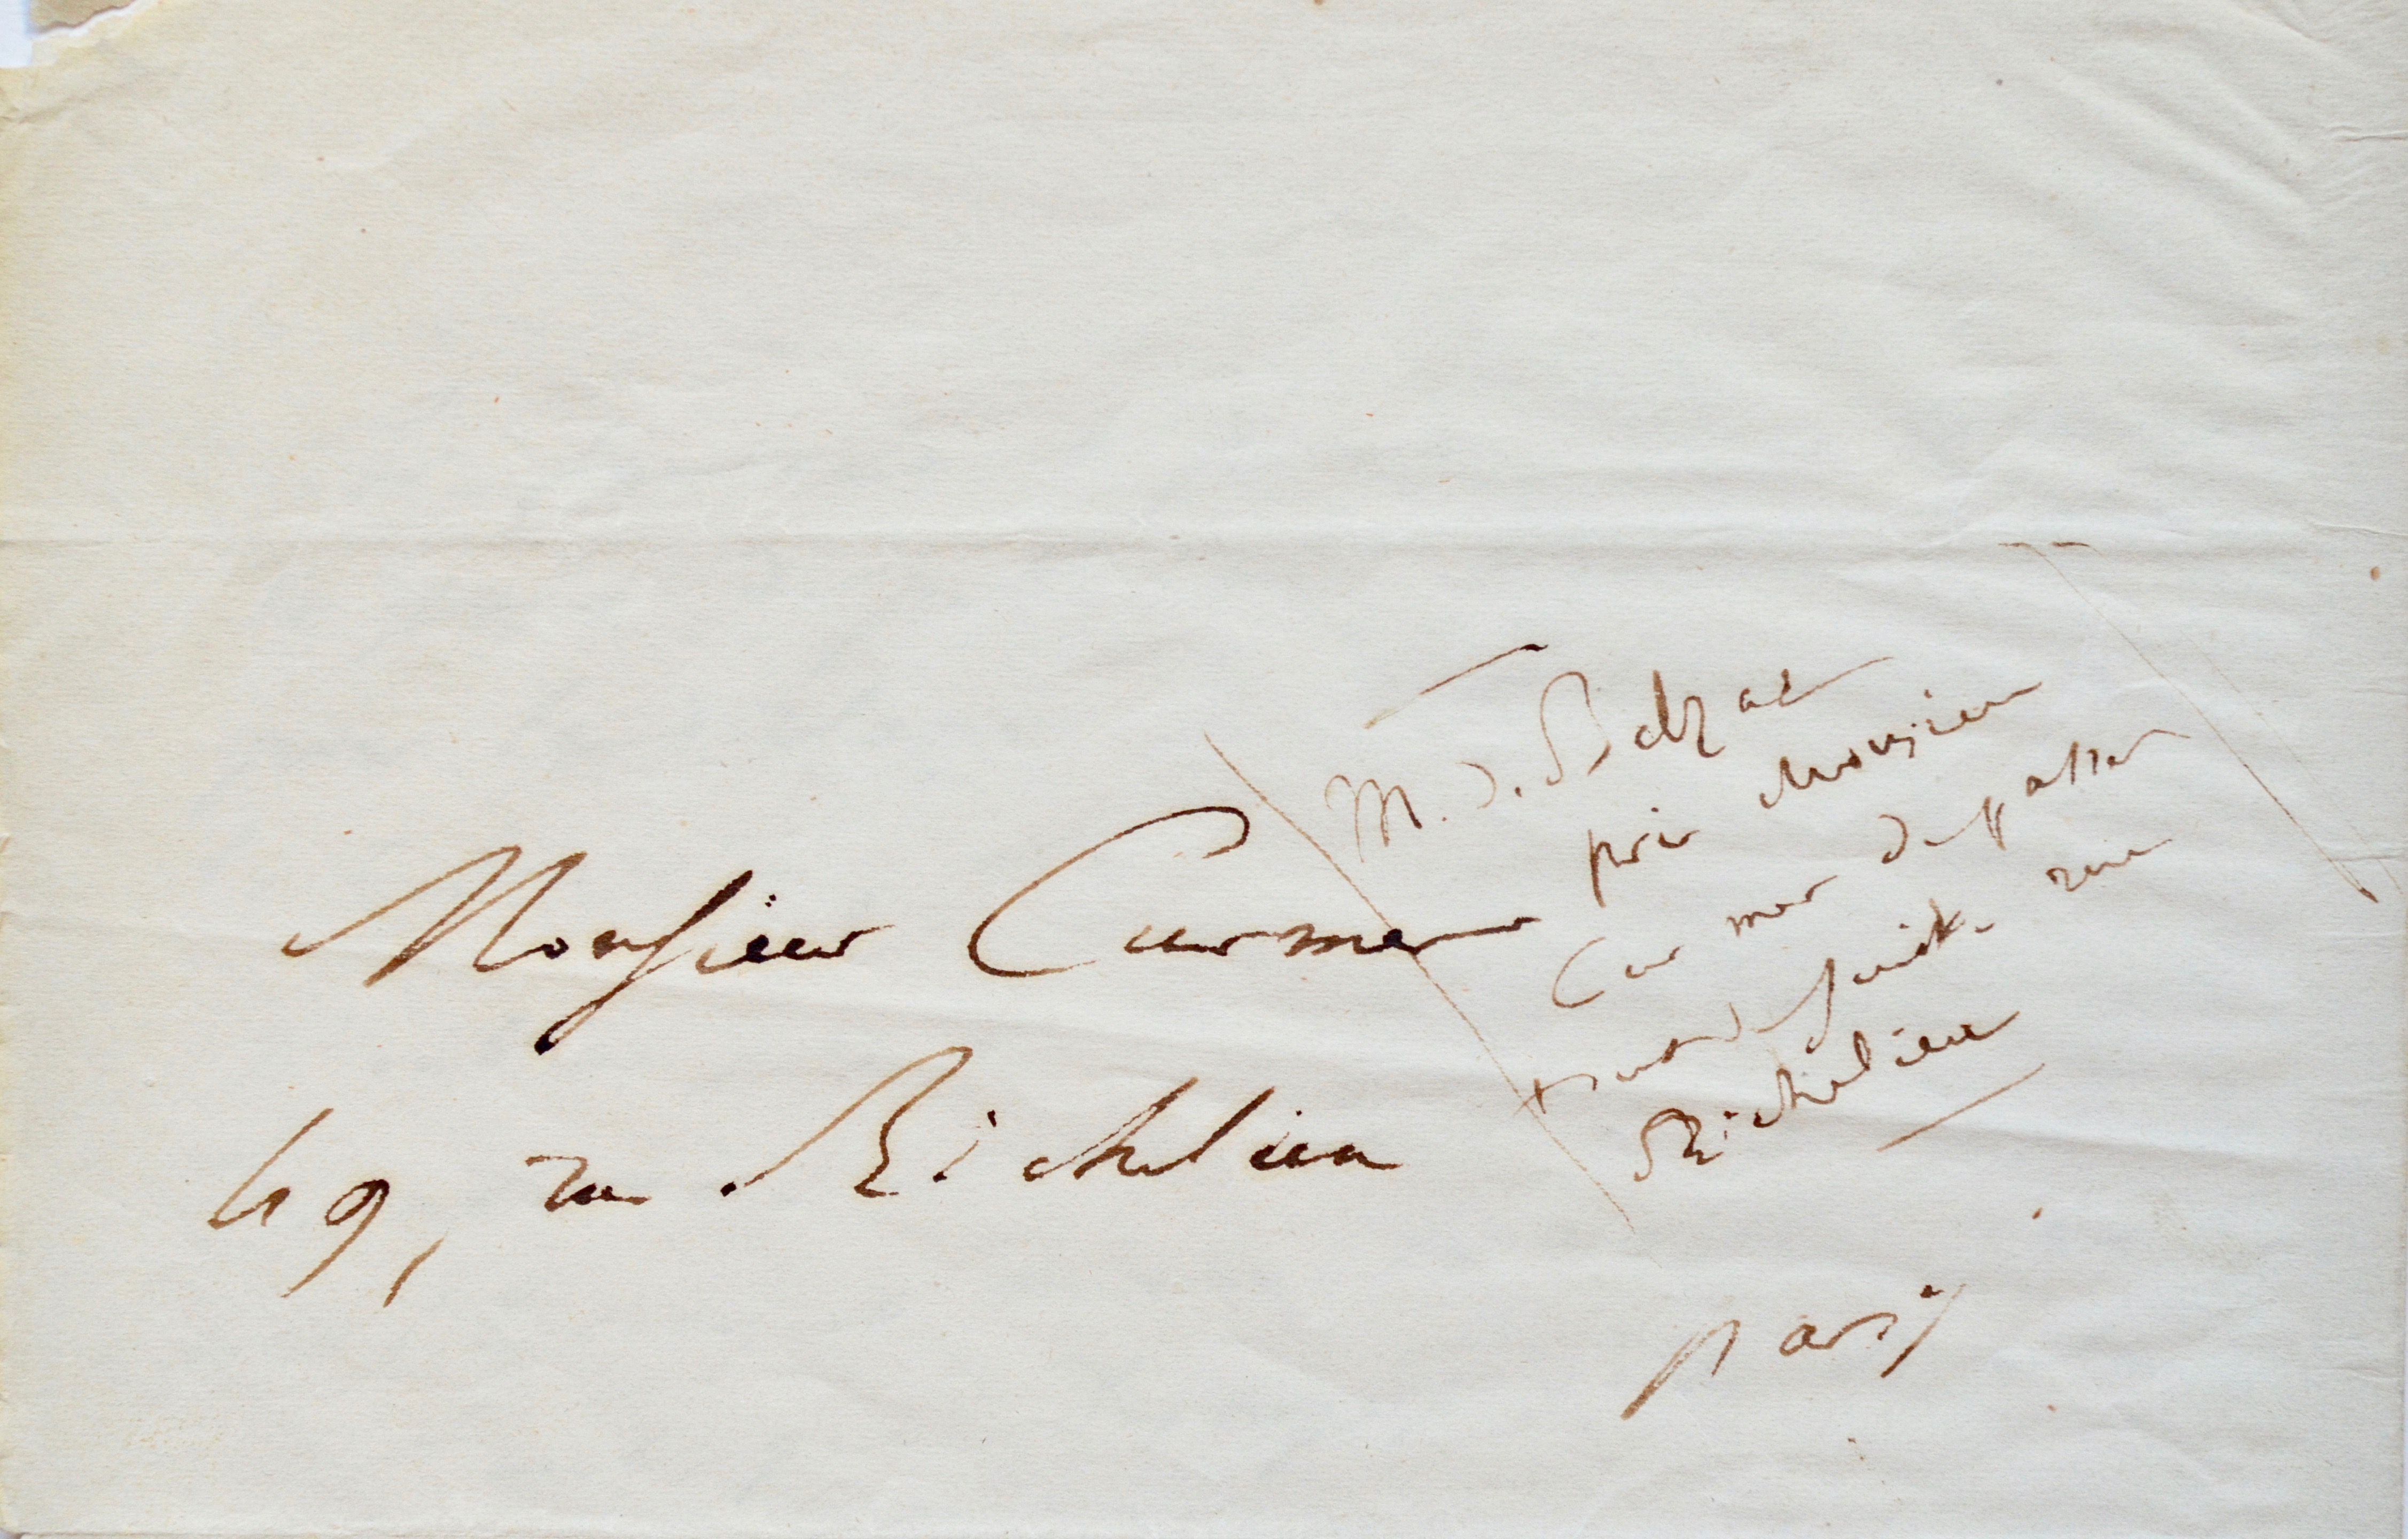 Monsieur Curmer
49, rue Richelieu
M. d. Balzac
prie Monsieur
Curmer de passer
tout de suite rue
Richelieu
Paris